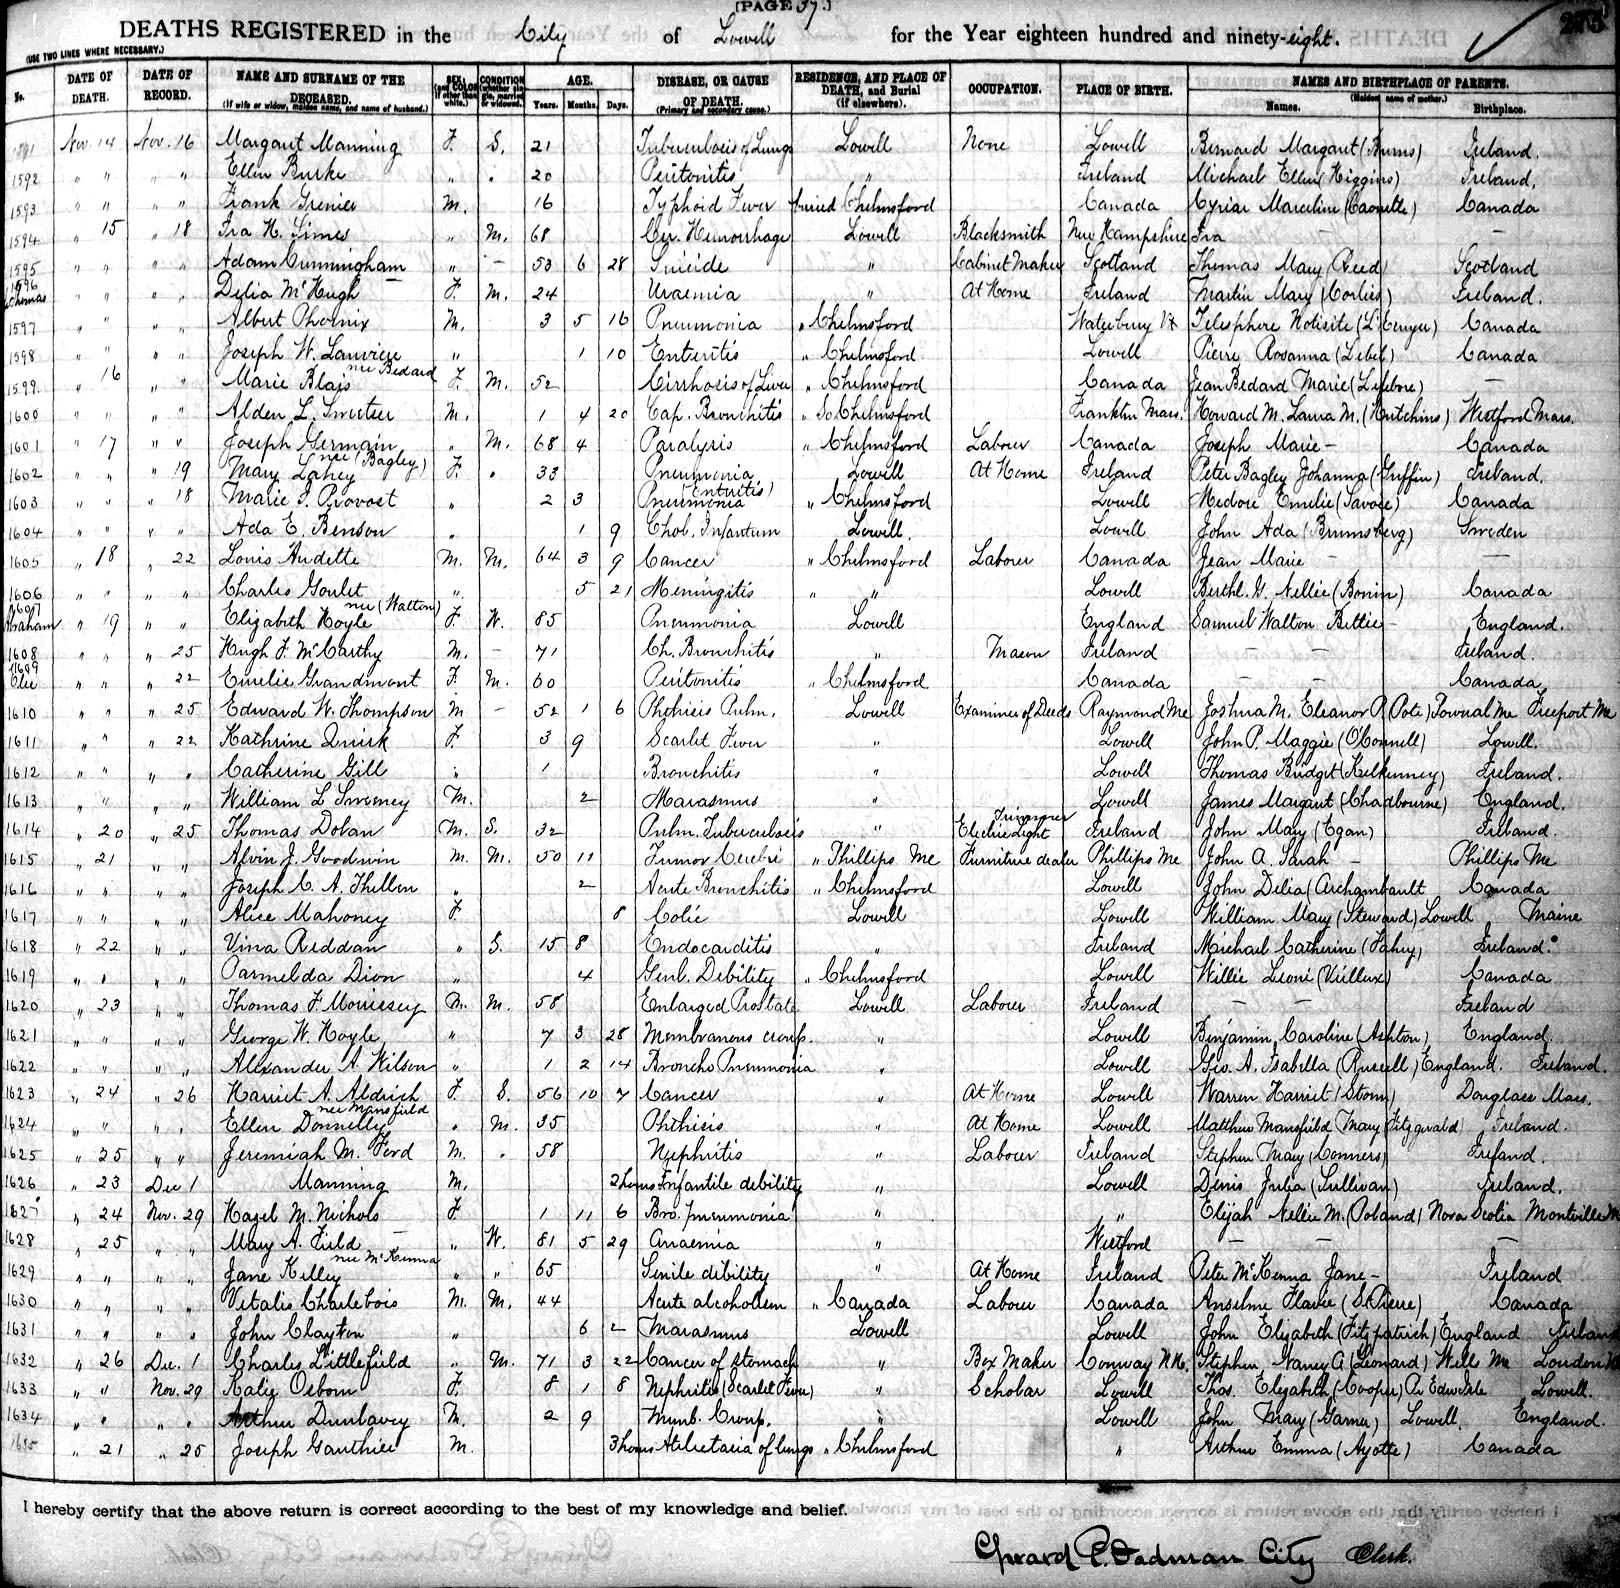 [PAGE 37.]
DEATHS REGISTERED in the City of Lowell for the Year eighteen hundred and ninety-eight. 273
(USE TWO LINES WHERE NECESSARY.)
No. DATE OF DEATH. DATE OF RECORD. NAME AND SURNAME OF THE DECEASED. (If wife or widow, maiden name, and name of husband.) SEX, (and COLOR if other than white.) CONDITION (whether single, married or widowed. AGE. Years. Months. Days. DISEASE, OR CAUSE OF DEATH. (Primary and secondary cause.) RESIDENCE, AND PLACE OF DEATH, and Burial (if elsewhere). OCCUPATION. PLACE OF BIRTH. NAMES AND BIRTHPLACE OF PARENTS. (Maiden name of mother.) Names. Birthplace.
1591 Nov. 14 Nov. 16 Margaret Manning F. S. 21 Tuberculosis of Lungs Lowell None Lowell Bernard Margaret (Burns) Ireland.
1592 " " " " Ellen Burke " " 20 Peritonitis " Ireland Michael Ellen (Higgins) Ireland.
1593 " " " " Frank Grenier M. 16 Typhoid Fever buried Chelmsford Canada Marceline (Caouette) Canada
1594 " 15 " 18 Ira H. Simes " M. 68 Cer. Hemorrhage Lowell Blacksmith New Hampshire Ira — —
1595 " " " " Adam Cunningham " — 53 6 28 Suicide " Cabinet Maker Scotland Thomas Mary (Reed) Scotland
1596 Thomas " " " " Delia McHugh — F. M. 24 Uraemia " At Home Ireland Martin Mary (Corliss) Ireland.
1597 " " " " Albert Phoenix M. 3 5 16 Pneumonia " Chelmsford Waterbury Vt Telesphore Canada
1598 " " " " Joseph W. Lariviere " 1 10 Enteritis " Chelmsford Lowell Pierre Rosanna (Lebel) Canada
1599 " 16 " " Marie Blais nee Bedard F. M. 52 Cirrhosis of Liver " Chelmsford Canada Jean Bedard Marie (Lefebvre) —
1600 " " " " Alden L. Smetser M. 1 4 20 Cap. Bronchitis " So Chelmsford Franklin Mass. Howard M. Laura M. (Hutchins) Westford Mass.
1601 " 17 " " Joseph Germain " M. 68 4 Paralysis " Chelmsford Laborer Canada Joseph Marie — Canada
1602 " " " 19 Mary Lahey nee (Bagley) F. " 33 Pneumonia Lowell At Home Ireland Peter Bagley Johanna (Griffin) Ireland.
1603 " " " 18 Marie I. Provost " 2 3 Pneumonia (Enteritis) " Chelmsford Lowell Medore Emelie (Savoie) Canada
1604 " " " " Ada E. Benson " 1 9 Chol. Infantum Lowell. Lowell John Ada (Brunsberg) Sweden
1605 " 18 " 22 Louis Audette M. M. 64 3 9 Cancer " Chelmsford Laborer Canada Jean Marie — —
1606 " " " " Charles Goulet " 5 21 Meningitis " " Lowell Berthl. G. Nellie (Bonin) Canada
1607 Abraham " 19 " " Elizabeth Hoyle nee (Walton) F. W. 85 Pneumonia Lowell England Samuel Walton Bettie — England.
1608 " " " 25 Hugh F. McCarthy M. — 71 Ch. Bronchitis " Mason Ireland — — Ireland.
1609 " " " 22 Emelie Grandmont F. M. 60 Peritonitis " Chelmsford Canada — — Canada
1610 " " " 25 Edward W. Thompson M — 52 1 6 Phthisis Pulm. Lowell Examiner of Deeds Raymond Me Joshua M. Eleanor P. (Pote) Pownal Me Freeport Me
1611 " " " 22 Kathrine Quirk F. 3 9 Scarlet Fever " Lowell John P. Maggie (O'Connell) Lowell.
1612 " " " " Catherine Gill " 1 Bronchitis " Lowell Thomas Bridget (Kilkenney) Ireland.
1613 " " " " William L Sweeney M. 2 Marasmus " Lowell James Margaret (Chadbourne) England.
1614 " 20 " 25 Thomas Dolan M. S. 32 Pulm. Tuberculosis " Electric Light Trimmer Ireland John Mary (Egan) Ireland.
1615 " 21 " " Alvin J. Goodwin M. M. 50 11 Tumor Cerebri " Phillips Me Furniture dealer Phillips Me John A. Sarah — Phillips Me
1616 " " " " Joseph C. A. 2 Acute Bronchitis " Chelmsford Lowell John Delia (Archambault Canada
1617 " " " " Alice Mahoney F. 8 Colic Lowell Lowell William Mary (Steward) Lowell Maine
1618 " 22 " " Vina Reddan " S. 15 8 Endocarditis " Ireland Michael Catherine (Fahey) Ireland.
1619 " " " " Parmelda Dion " 4 Genl. Debility " Chelmsford Lowell Willie Leoni (Viellux) Canada
1620 " 23 " " Thomas F. Morrissey M. M. 58 Enlarged Prostate Lowell Laborer Ireland — — Ireland
1621 " " " " George W. Hoyle " 7 3 28 Membranous croup. " Lowell Benjamin Caroline (Ashton) England.
1622 " " " " Alexander A. Wilson " 1 2 14 Broncho Pneumonia " Lowell Geo. A. Isabella (Russell) England. Ireland.
1623 " 24 " 26 Harriet A. Aldrich F. S. 56 10 7 Cancer " At Home Lowell Warren Harriet (Stone) Douglass Mass.
1624 " " " " Ellen Donnelly nee Mansfield " M. 35 Phthisis " At Home Lowell Matthew Mansfield Mary (Fitzgerald) Ireland.
1625 " 25 " " Jeremiah M. Ford M. " 58 Nephritis " Laborer Ireland Stephen Mary (Conners) Ireland.
1626 " 23 Dec 1 Manning M. 2 hours Infantile debility " Lowell Denis Julia (Sullivan) Ireland.
1627 " 24 Nov. 29 Hazel M. Nichols F. 1 11 6 Bro. pneumonia " " Elijah Nellie M. (Poland) Nova Scotia Montville Me
1628 " 25 " " Mary A. Field — " W. 81 5 29 Anaemia " Westford — — —
1629 " " " " Jane Kelley nee McKenna " " 65 Senile debility " At Home Ireland Peter McKenna Jane — Ireland
1630 " " " " Vitalis Charlebois M. M. 44 Acute alcoholism " Canada Laborer Canada Anselme Flavie (St. Pierre) Canada
1631 " " " " John Clayton " 6 2 Marasmus Lowell Lowell John Elizabeth (Fitzpatrick) England Ireland
1632 " 26 Dec. 1 Charles Littlefield " M. 71 3 22 Cancer of Stomach " Box Maker Conway N.H. Stephen Nancy A (Leonard) Wells Me London
1633 " " Nov. 29 Katie Osborn F. 8 1 8 Nephritis (Scarlet Fever) " Scholar Lowell Thos. Elizabeth (Cooper) Pr. Edw Isle Lowell.
1634 " " " " Arthur Dunlavey M. 2 9 Memb. Croup. " Lowell John Mary (Garner) Lowell. England.
1635 " 21 " 25 Joseph Gauthier M. 3 hours of lungs " Chelmsford " Arthur Emma (Ayotte) Canada
I hereby certify that the above return is correct according to the best of my knowledge and belief.
P. Dadman City Clerk.